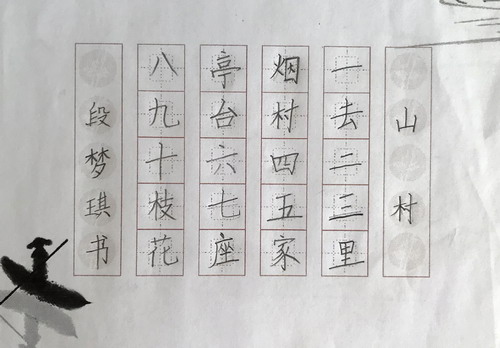 山村
一去二三里
烟村四五家
亭台六七座
八九十枝花
段梦琪书